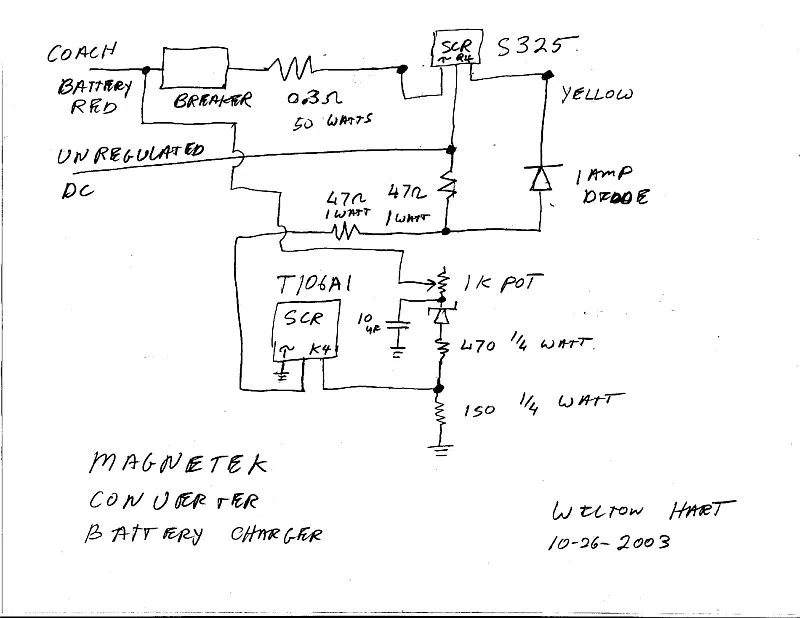 COACH
BATTERY
RED
BREAKER
0.3Ω
50 WATTS
SCR
S325
YELLOW
UNREGULATED
DC
47Ω
1 WATT
47Ω
1 WATT
1 AMP
DIODE
T106A1
SCR
K4
10
1K POT
470 1/4 WATT
150 1/4 WATT
MAGNETEK
CONVERTER
BATTERY CHARGER
WILTON HART
10-26-2003